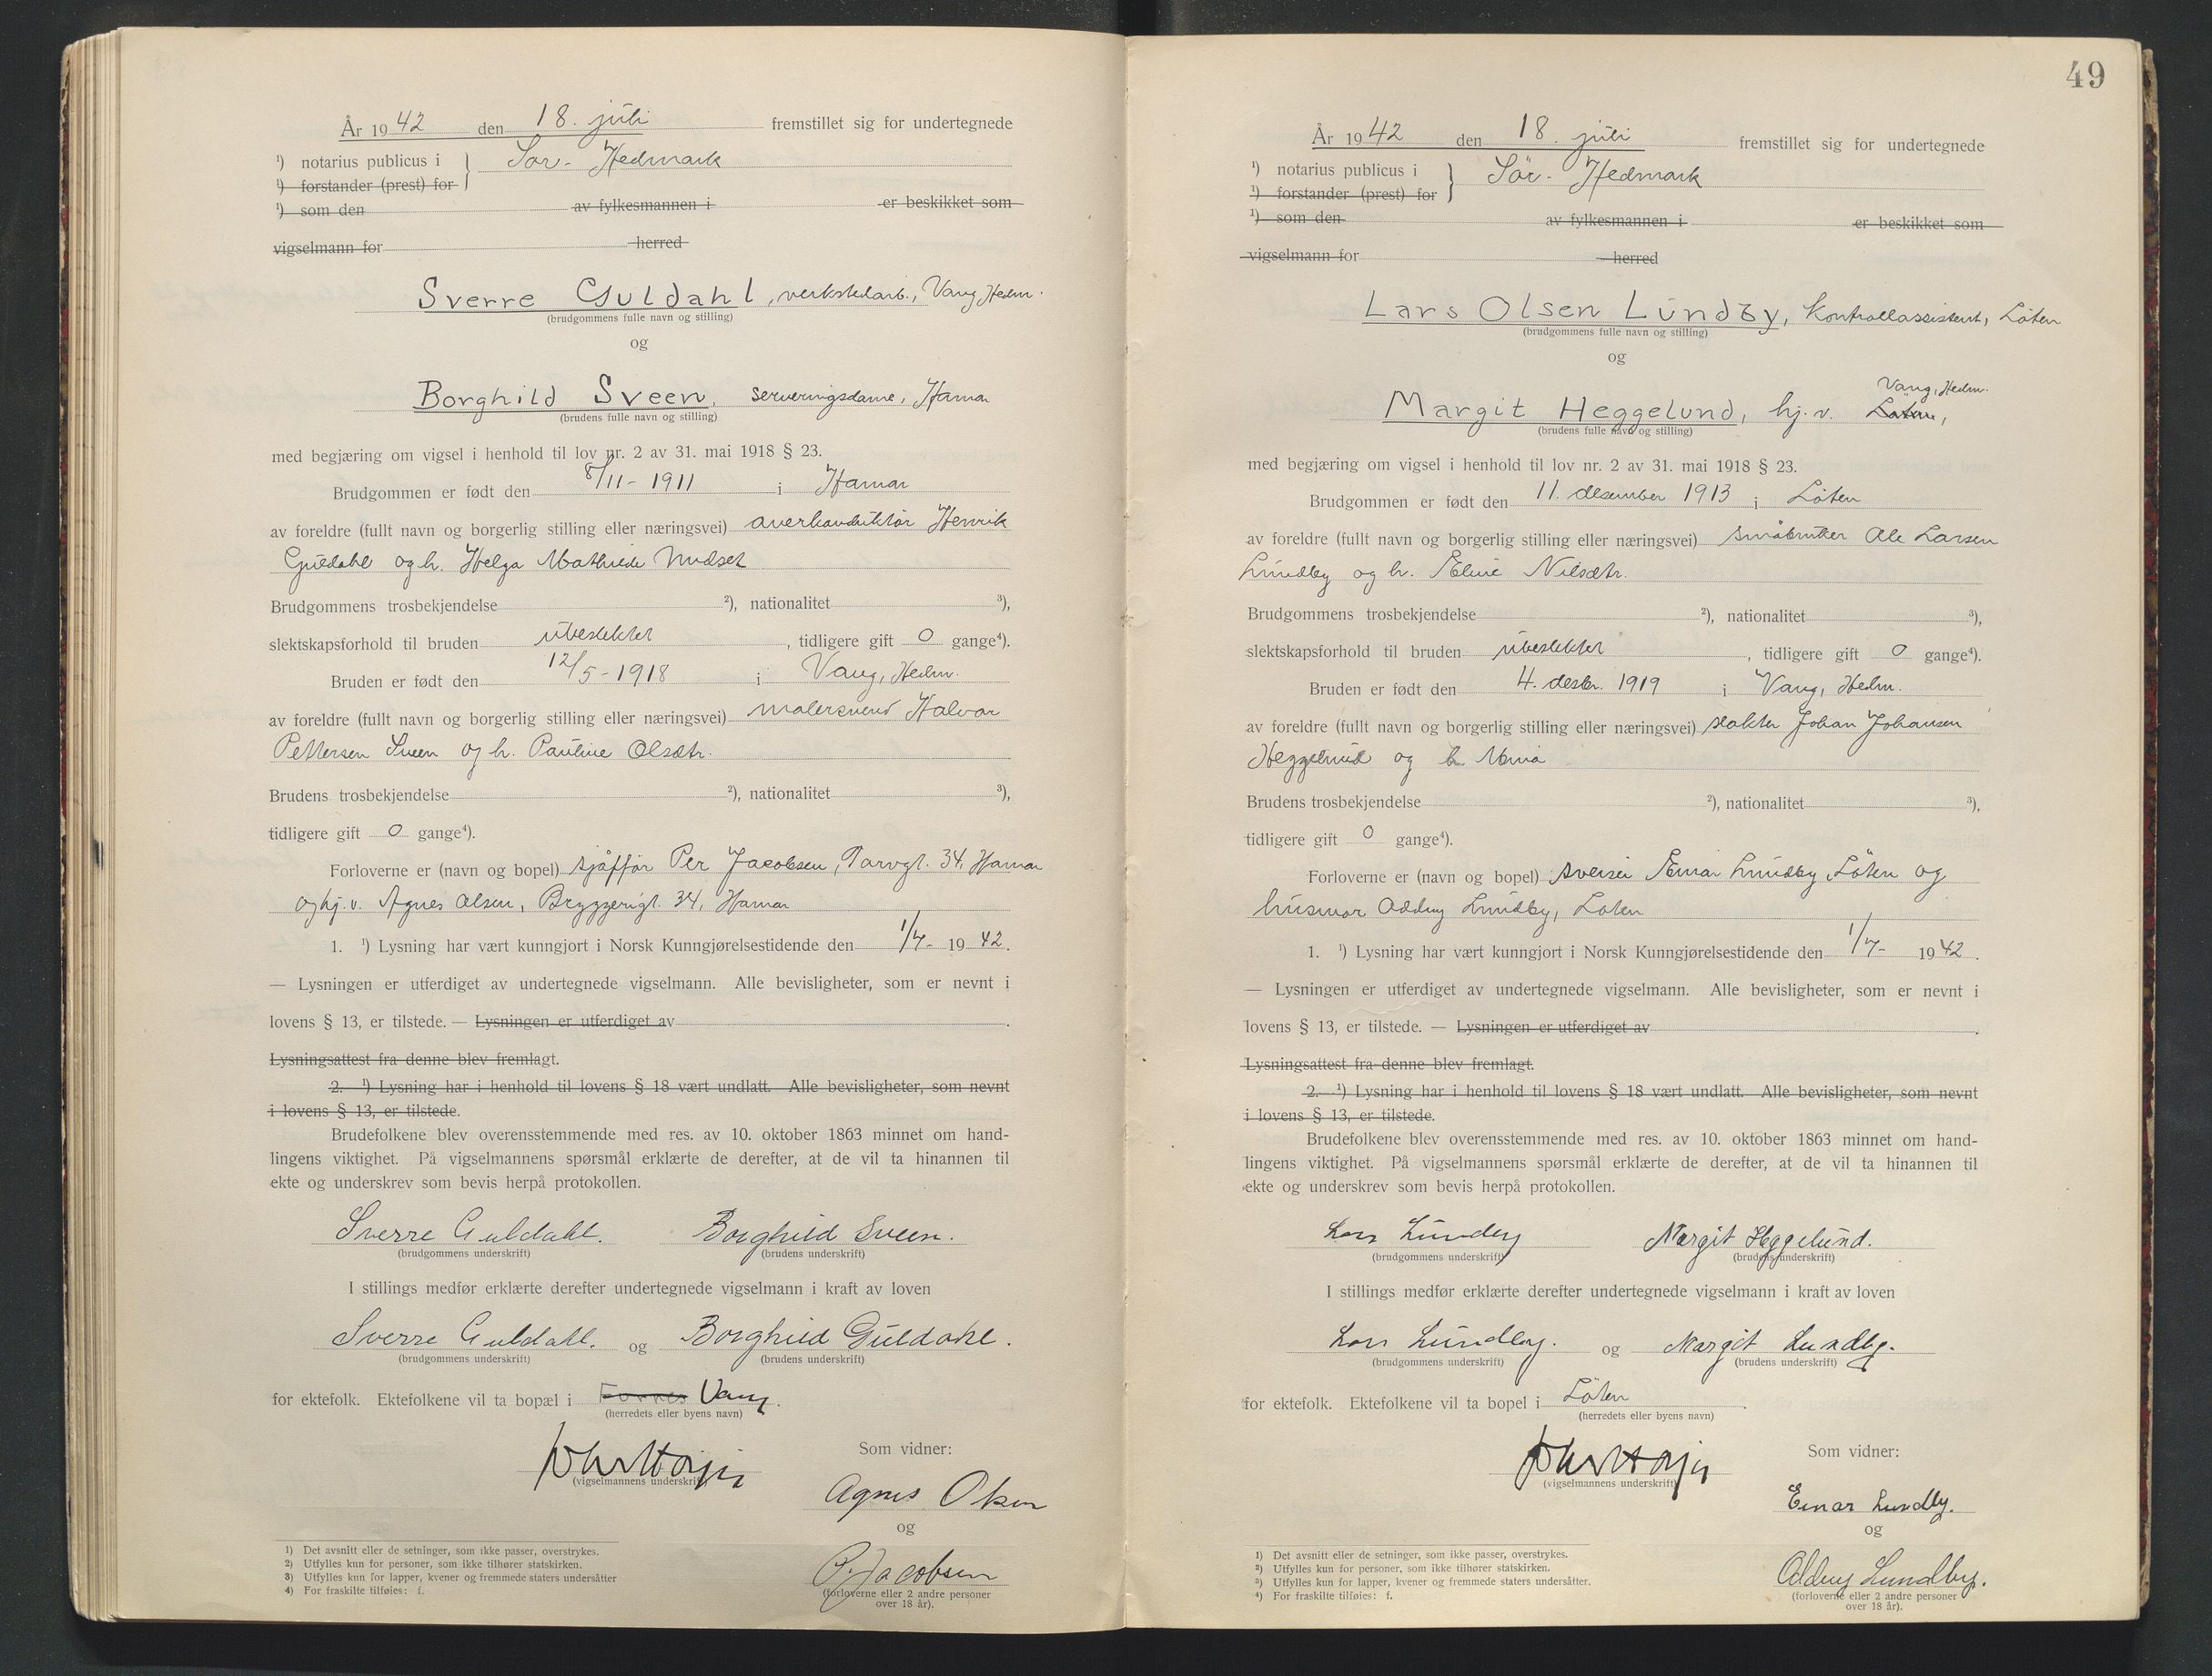 År 1942 den 18. juli fremstillet sig for undertegnede
¹) notarius publicus i } Sör- Hedmark
¹) forstander (prest) for
¹) som den av fylkesmannen i er beskikket som
vigselmann for herred
Sverre Guldahl, verkstedarb., Vang, Hedm.
(brudgommens fulle navn og stilling)
og
Borghild Sveen, serveringsdame, Hamar
(brudens fulle navn og stilling)
med begjæring om vigsel i henhold til lov nr. 2 av 31. mai 1918 § 23.
Brudgommen er født den 8/11 - 1911 i Hamar
av foreldre (fullt navn og borgerlig stilling eller næringsvei) overkonduktör Henrik
Guldahl og h. Helga Mathilde
Brudgommens trosbekjendelse ²), nationalitet ³),
slektskapsforhold til bruden ubeslektet, tidligere gift 0 gange⁴).
Bruden er født den 12/5 - 1918 i Vang, Hedm.
av foreldre (fullt navn og borgerlig stilling eller næringsvei) malersvend Halvor
Pettersen Sveen og h. Pauline Olsdtr.
Brudens trosbekjendelse ²), nationalitet ³),
tidligere gift 0 gange⁴).
Forloverne er (navn og bopel) sjåfför Per Jacobsen, Torvgt. 34, Hamar
og hj.v. Agnes Olsen, Bryggerigt. 34, Hamar
1. ¹) Lysning har vært kunngjort i Norsk Kunngjørelsestidende den 1/7- 1942.
— Lysningen er utferdiget av undertegnede vigselmann. Alle bevisligheter, som er nevnt i
lovens § 13, er tilstede. — Lysningen er utferdiget av .
Lysningsattest fra denne blev fremlagt.
2. ¹) Lysning har i henhold til lovens § 18 vært undlatt. Alle bevisligheter, som nevnt
i lovens § 13, er tilstede.
Brudefolkene blev overensstemmende med res. av 10. oktober 1863 minnet om hand-
lingens viktighet. På vigselmannens spørsmål erklærte de derefter, at de vil ta hinannen til
ekte og underskrev som bevis herpå protokollen.
Sverre Guldahl. Borghild Sveen.
(brudgommens underskrift) (brudens underskrift)
I stillings medfør erklærte derefter undertegnede vigselmann i kraft av loven
Sverre Guldahl. og Borghild Guldahl.
(brudgommens underskrift) (brudens underskrift)
for ektefolk. Ektefolkene vil ta bopæl i Furnes Vang.
(herredets eller byens navn)
Som vidner:
(vigselmannens underskrift)
Agnes Olsen
og
P. Jacobsen
(forloverne eller 2 andre personer
over 18 år).
1) Det avsnitt eller de setninger, som ikke passer, overstrykes.
2) Utfylles kun for personer, som ikke tilhører statskirken.
3) Utfylles kun for lapper, kvener og fremmede staters undersåtter
4) For fraskilte tilføies: f.
49
År 1942 den 18. juli fremstillet sig for undertegnede
¹) notarius publicus i } Sör- Hedmark
¹) forstander (prest) for
¹) som den av fylkesmannen i er beskikket som
vigselmann for herred
Lars Olsen Lundby, kontrollassistent, Löten
(brudgommens fulle navn og stilling)
og
Vang, Hedm.
Margit Heggelund, hj.v. Löten,
(brudens fulle navn og stilling)
med begjæring om vigsel i henhold til lov nr. 2 av 31. mai 1918 § 23.
Brudgommen er født den 11. desember 1913 i Löten
av foreldre (fullt navn og borgerlig stilling eller næringsvei) småbruker Ole Larsen
Lundby og h. Eline Nilsdtr.
Brudgommens trosbekjendelse ²), nationalitet ³),
slektskapsforhold til bruden ubeslektet, tidligere gift 0 gange⁴).
Bruden er født den 4. desbr. 1919 i Vang, Hedm.
av foreldre (fullt navn og borgerlig stilling eller næringsvei) slakter Johan Johansen
Heggelund og h.
Brudens trosbekjendelse ²), nationalitet ³),
tidligere gift 0 gange⁴).
Forloverne er (navn og bopel) sveiser Einar Lundby, Löten og
husmor Oddny Lundby, Löten
1. ¹) Lysning har vært kunngjort i Norsk Kunngjørelsestidende den 1/7- 1942.
— Lysningen er utferdiget av undertegnede vigselmann. Alle bevisligheter, som er nevnt i
lovens § 13, er tilstede. — Lysningen er utferdiget av .
Lysningsattest fra denne blev fremlagt.
2. ¹) Lysning har i henhold til lovens § 18 vært undlatt. Alle bevisligheter, som nevnt
i lovens § 13, er tilstede.
Brudefolkene blev overensstemmende med res. av 10. oktober 1863 minnet om hand-
lingens viktighet. På vigselmannens spørsmål erklærte de derefter, at de vil ta hinannen til
ekte og underskrev som bevis herpå protokollen.
Lars Lundby Margit Heggelund.
(brudgommens underskrift) (brudens underskrift)
I stillings medfør erklærte derefter undertegnede vigselmann i kraft av loven
Lars Lundby. og Margit Lundby.
(brudgommens underskrift) (brudens underskrift)
for ektefolk. Ektefolkene vil ta bopel i Löten.
(herredets eller byens navn)
Som vidner:
(vigselmannens underskrift)
Einar Lundby.
og
Oddny Lundby.
(forloverne eller 2 andre personer
over 18 år).
1) Det avsnitt eller de setninger, som ikke passer, overstrykes.
2) Utfylles kun for personer, som ikke tilhører statskirken.
3) Utfylles kun for lapper, kvener og fremmede staters undersåtter.
4) For fraskilte tilføies: f.